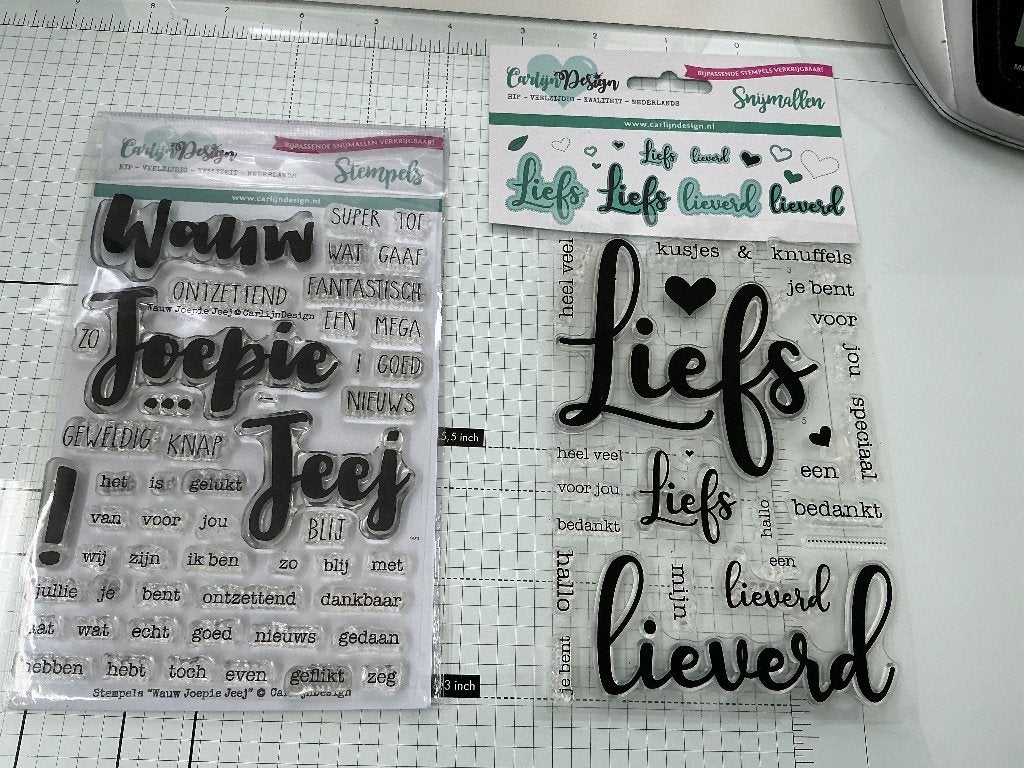 CarlijnDesign
HIP - VEELZIJDIG - KWALITEIT - NEDERLANDS
BIJPASSENDE SNIJMALLEN VERKRIJGBAAR!
Stempels
www.carlijndesign.nl
Wauw
SUPER TOF
WAT GAAF
ONTZETTEND FANTASTISCH
Wauw Joepie Jeej © CarlijnDesign
ZO
Joepie
EEN MEGA
! GOED
NIEUWS
GEWELDIG KNAP
Jeej
!
het is gelukt
van voor jou
BLIJ
wij zijn ik ben zo blij met
jullie je bent ontzettend dankbaar
wat echt goed nieuws gedaan
hebben hebt toch even geflikt zeg
Stempels "Wauw Joepie Jeej" © CarlijnDesign
5,5 inch
3 inch
9 8 7 6 5 4 3 2 1 0
CarlijnDesign
HIP - VEELZIJDIG - KWALITEIT - NEDERLANDS
BIJPASSENDE STEMPELS VERKRIJGBAAR!
Snijmallen
www.carlijndesign.nl
Liefs lieverd
Liefs Liefs lieverd lieverd
heel veel
kusjes & knuffels
je bent
voor
jou
speciaal
Liefs
een
heel veel
voor jou
bedankt
Liefs
hallo
bedankt
hallo
mijn
een
lieverd
je bent
lieverd